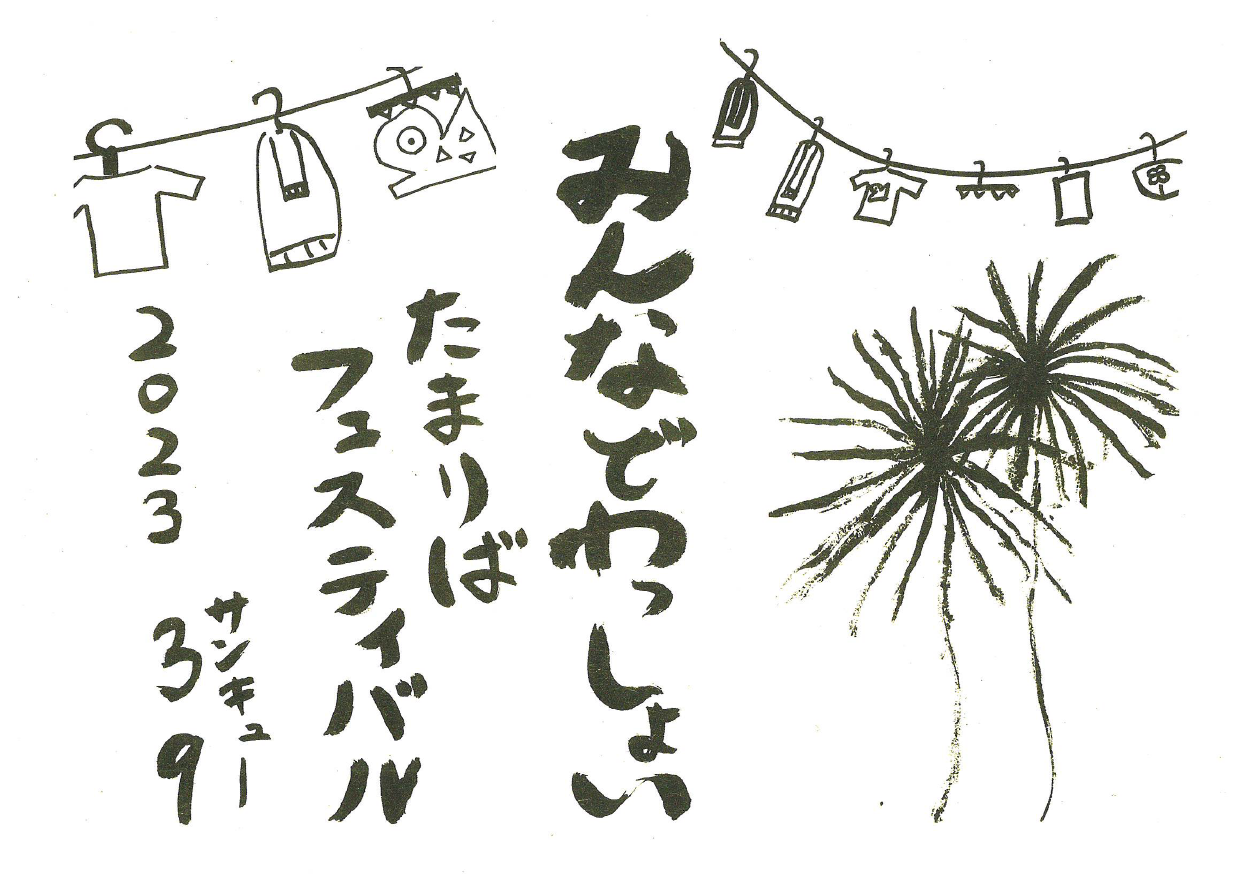 みんなでわっしょい
たまりば
フェスティバル
サンキュー
2023 39